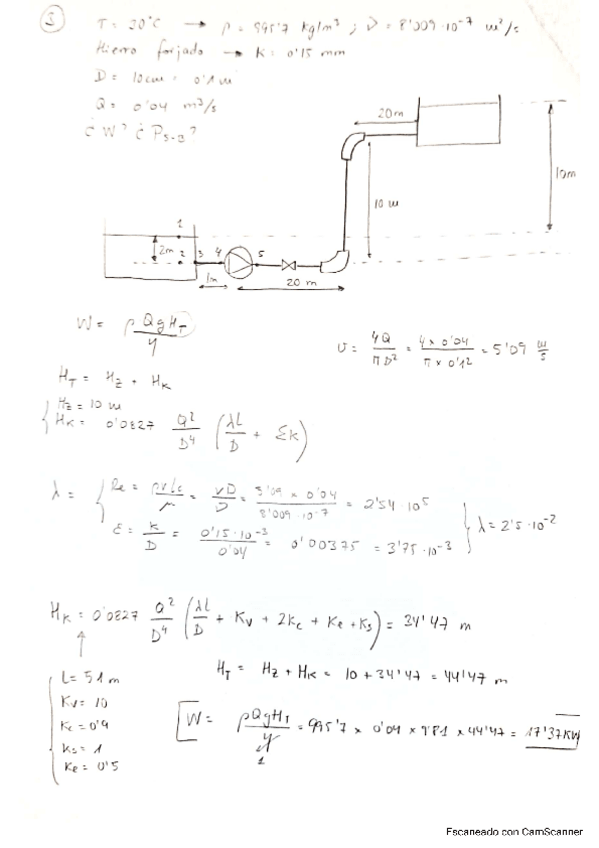 3
T = 30°C → ρ = 995'7 kg/m³ ; ν = 8'009·10⁻⁷ m²/s
Hierro forjado → K = 0'15 mm
D = 10cm = 0'1 m
Q = 0'04 m³/s
¿ W? ¿ P5-3?
20m
10m
10 m
1
2m
2
3
4
5
1m
20 m
W = ρQgH_T / η
v = 4Q / πD² = 4 × 0'04 / π × 0'1² = 5'09 m/s
H_T = H_z + H_K
H_z = 10 m
H_K = 0'0827 Q²/D⁴ (λL/D + ΣK)
λ = { Re = ρvLc/μ = vD/ν = 5'09 × 0'04 / 8'009·10⁻⁷ = 2'54·10⁵
ε = k/D = 0'15·10⁻³ / 0'04 = 0'00375 = 3'75·10⁻³ } λ = 2'5·10⁻²
H_K = 0'0827 Q²/D⁴ (λL/D + Kv + 2Kc + Ke + Ks) = 34'47 m
L = 51 m
Kv = 10
Kc = 0'9
Ks = 1
Ke = 0'5
H_T = H_z + H_K = 10 + 34'47 = 44'47 m
W = ρQgH_T / η = 995'7 × 0'04 × 9'81 × 44'47 = 17'37 KW
1
Escaneado con CamScanner